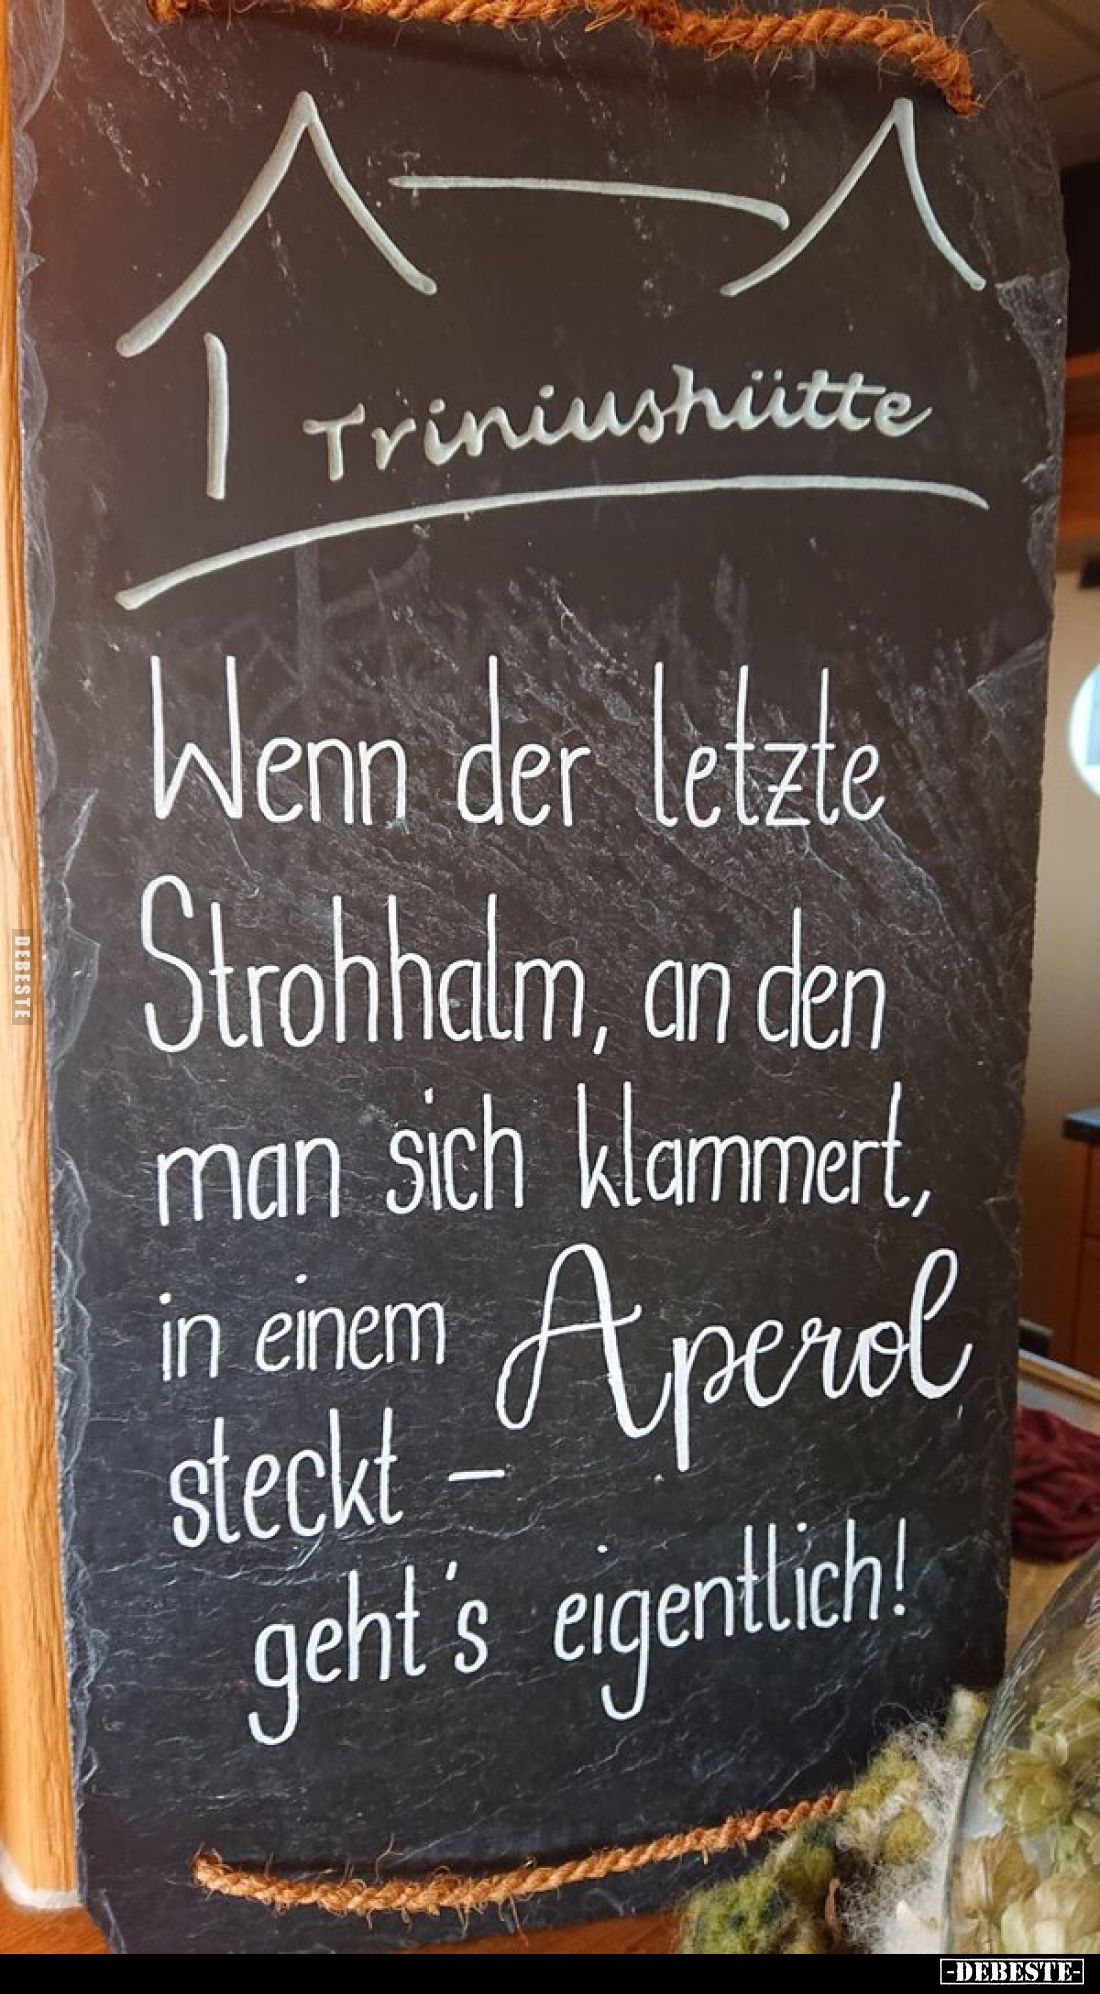 Triniushütte
Wenn der letzte
Strohhalm, an den
man sich klammert,
in einem Aperol
steckt –
geht's eigentlich!
DEBESTE
-DEBESTE-